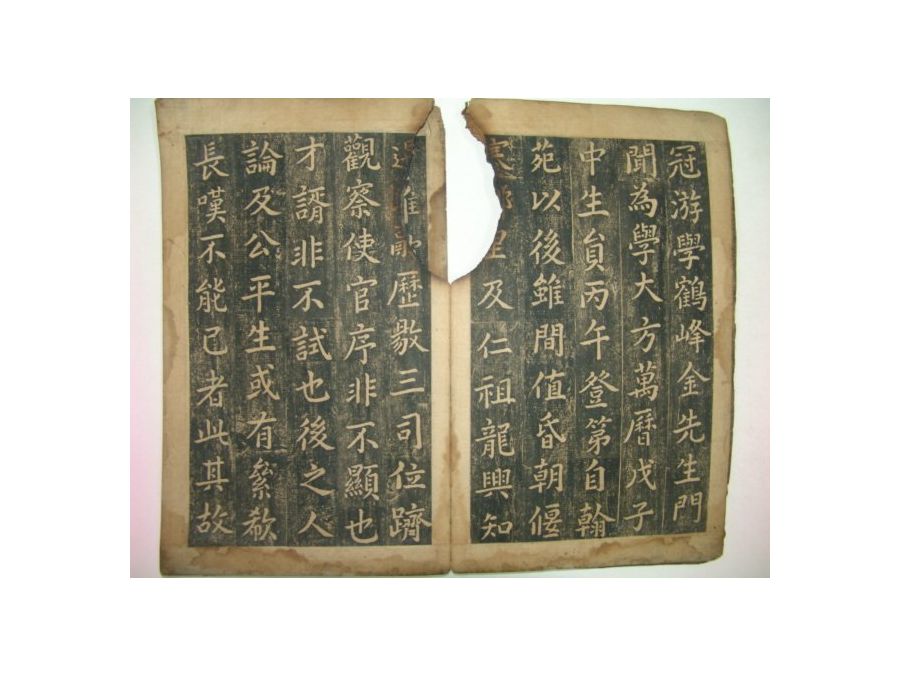 冠游學鶴峰金先生門
聞為學大方萬曆戊子
中生員丙午登第自翰
苑以後雖間值昏朝偃
及仁祖龍興知
雖歷敭三司位躋
觀察使官序非不顯也
才諝非不試也後之人
論及公平生或有絫欷
長嘆不能已者此其故